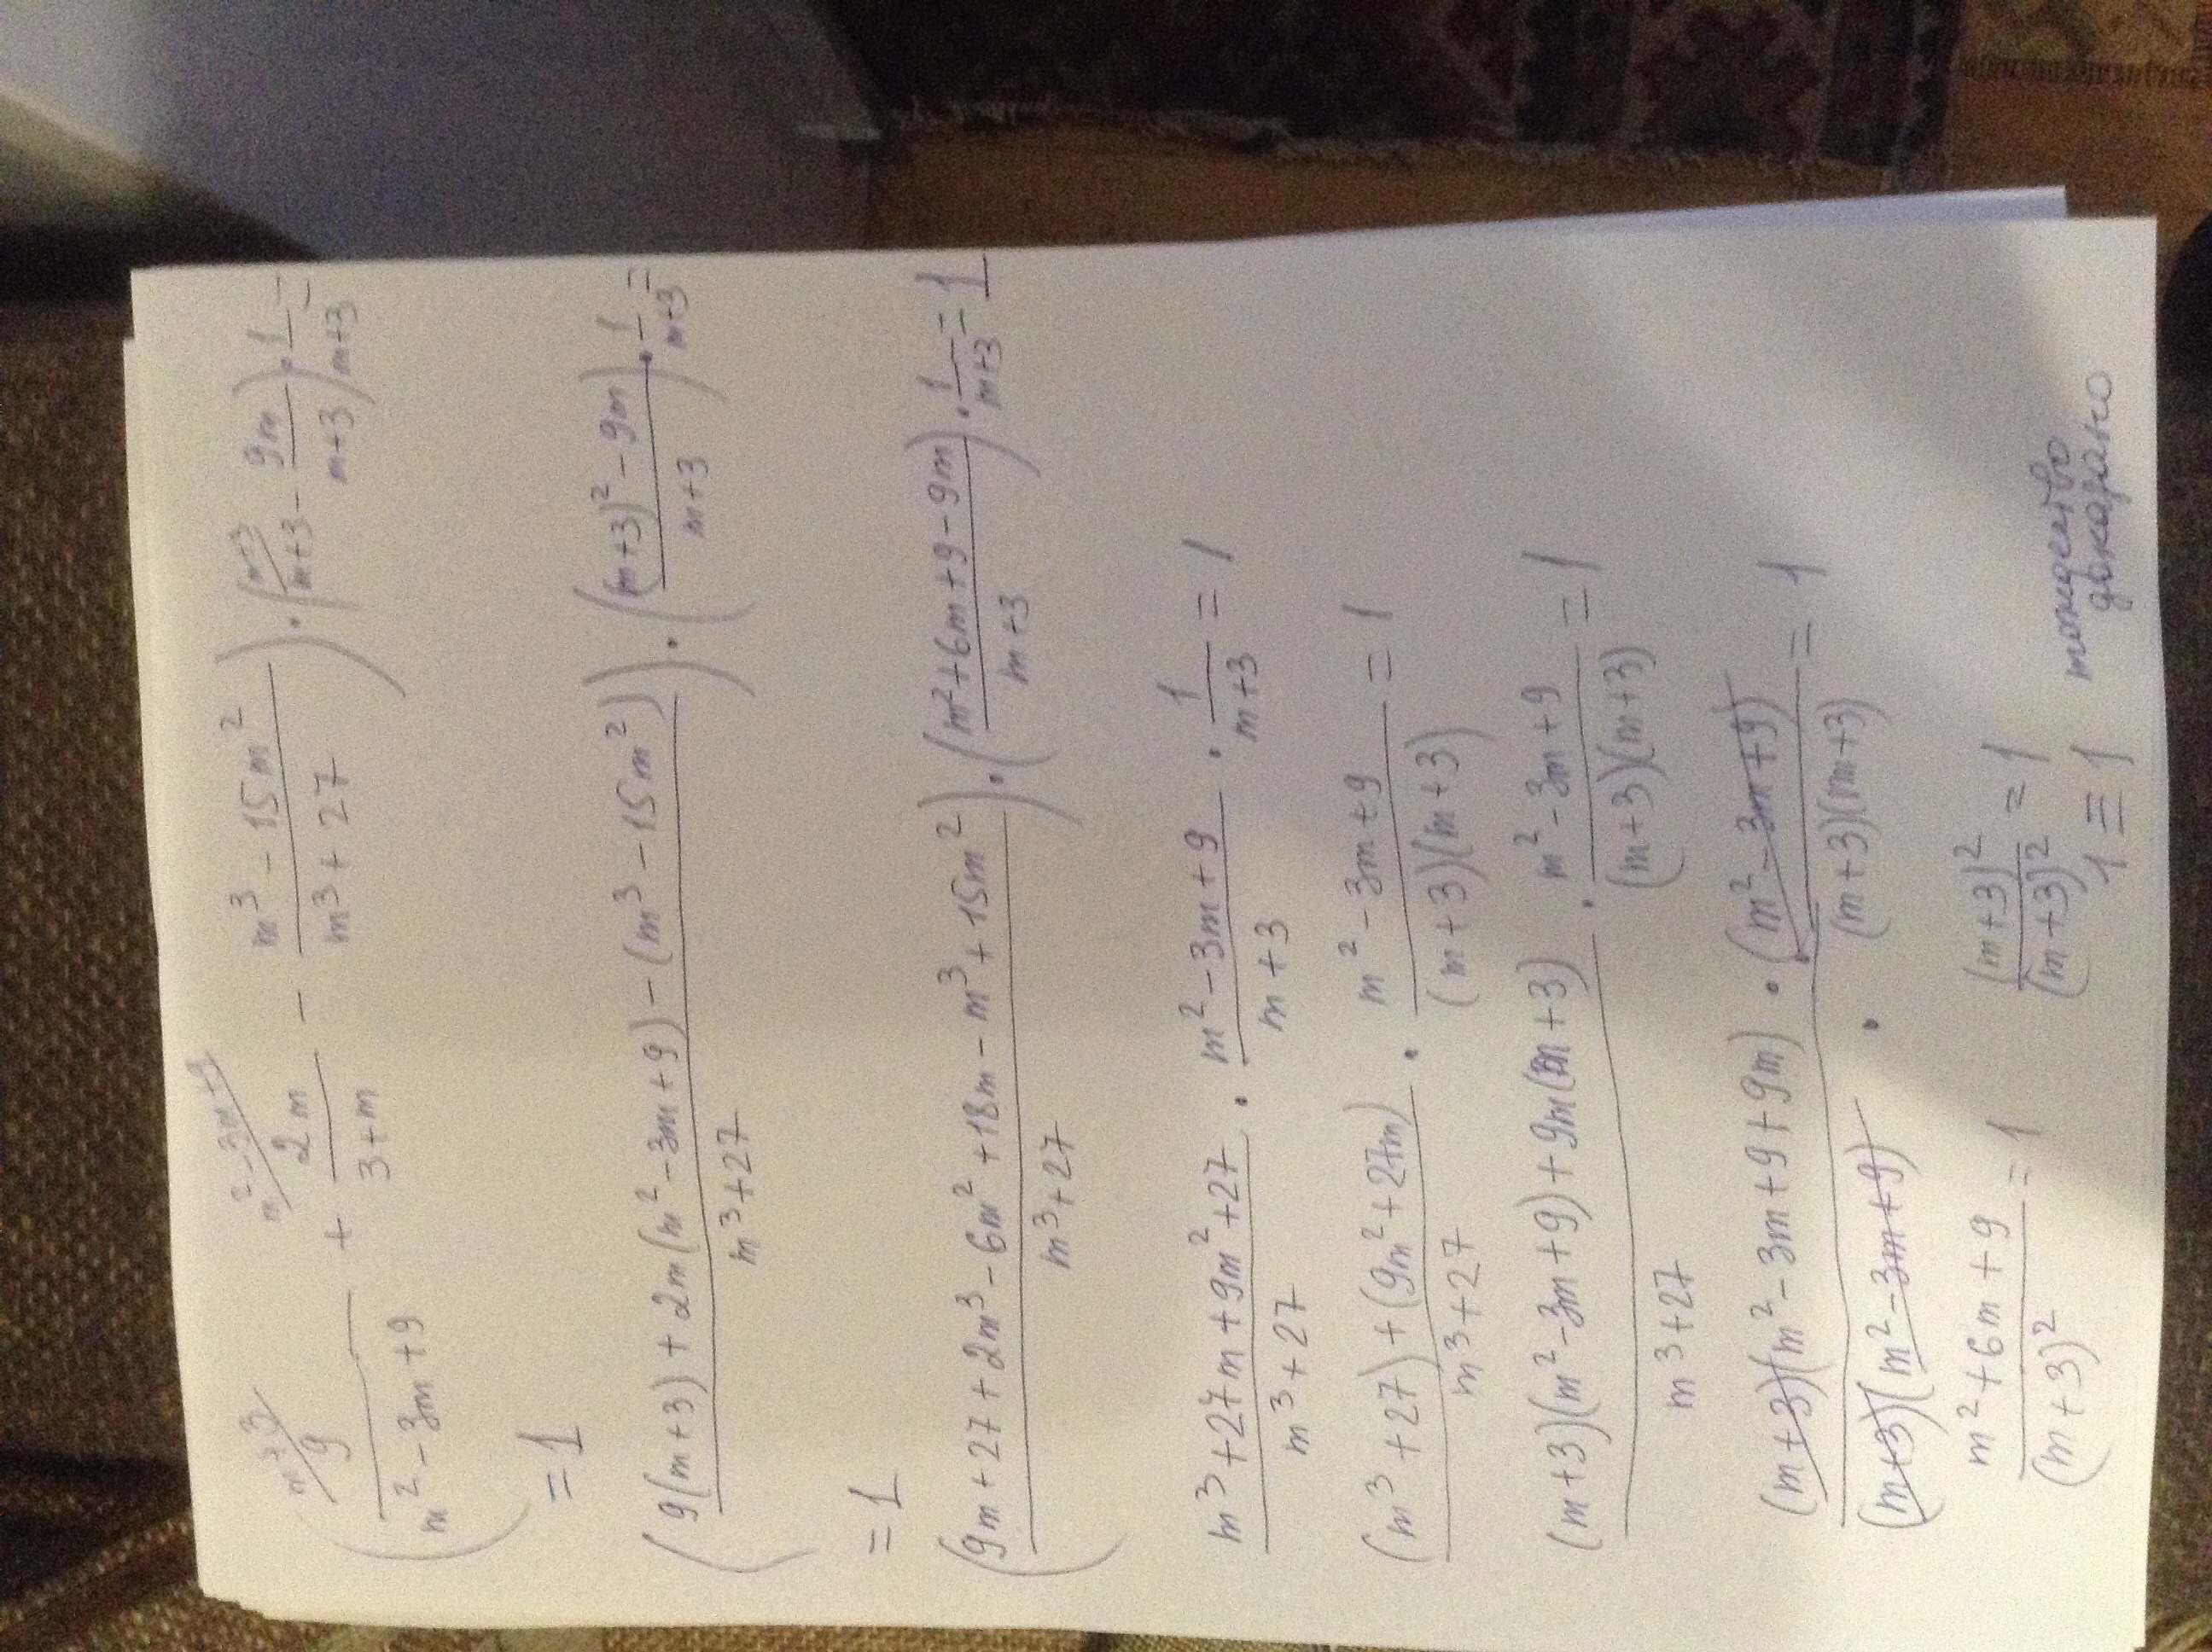 ( 9^{m+3} / (m² - 3m + 9) + 2m^{m² - 3m + 9} / (3 + m) - (m³ - 15m²) / (m³ + 27) ) · ( m + 3^{m+3} - 9m / (m + 3) ) · 1 / (m + 3) =
= 1
( (9(m + 3) + 2m(m² - 3m + 9) - (m³ - 15m²)) / (m³ + 27) ) · ( ((m + 3)² - 9m) / (m + 3) ) · 1 / (m + 3) =
= 1
( (9m + 27 + 2m³ - 6m² + 18m - m³ + 15m²) / (m³ + 27) ) · ( (m² + 6m + 9 - 9m) / (m + 3) ) · 1 / (m + 3) = 1
(m³ + 27m + 9m² + 27) / (m³ + 27) · (m² - 3m + 9) / (m + 3) · 1 / (m + 3) = 1
((m³ + 27) + (9m² + 27m)) / (m³ + 27) · (m² - 3m + 9) / ((m + 3)(m + 3)) = 1
((m + 3)(m² - 3m + 9) + 9m(m + 3)) / (m³ + 27) · (m² - 3m + 9) / ((m + 3)(m + 3)) = 1
((m + 3)(m² - 3m + 9 + 9m) · (m² - 3m + 9)) / ((m + 3)(m² - 3m + 9) · (m + 3)(m + 3)) = 1
(m² + 6m + 9) / (m + 3)² = 1 (m + 3)² / (m + 3)² = 1
1 ≡ 1 тождество
доказано